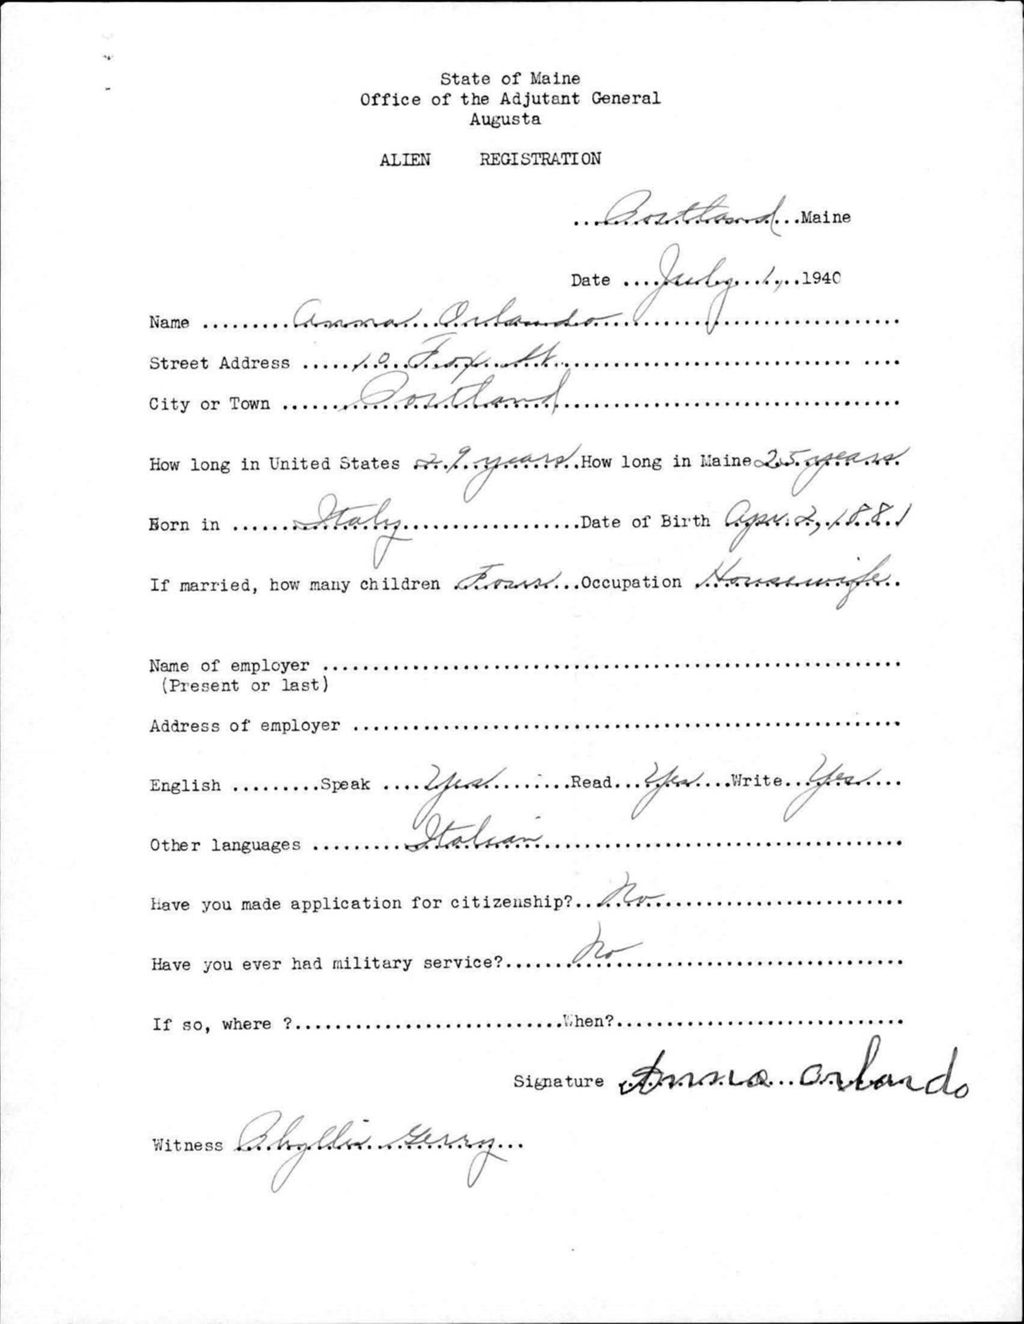 State of Maine
Office of the Adjutant General
Augusta
ALIEN REGISTRATION
...Portland...Maine
Date ....July 1,...1940
Name .........Anna Orlando..............................
Street Address ......10 Fox St...............................
City or Town .......Portland..............................
How long in United States 29 years..How long in Maine 25 years
Born in ......Italy..................Date of Birth Apr. 2, 1881
If married, how many children Four...Occupation Housewife..
Name of employer ..........................................................
(Present or last)
Address of employer .......................................................
English .........Speak ....Yes.........Read...Yes....Write...Yes....
Other languages .........Italian....................................
Have you made application for citizenship?..No.........................
Have you ever had military service?.......No..............................
If so, where ?...........................When?.............................
Signature Anna Orlando
Witness Phyllis Gerry...